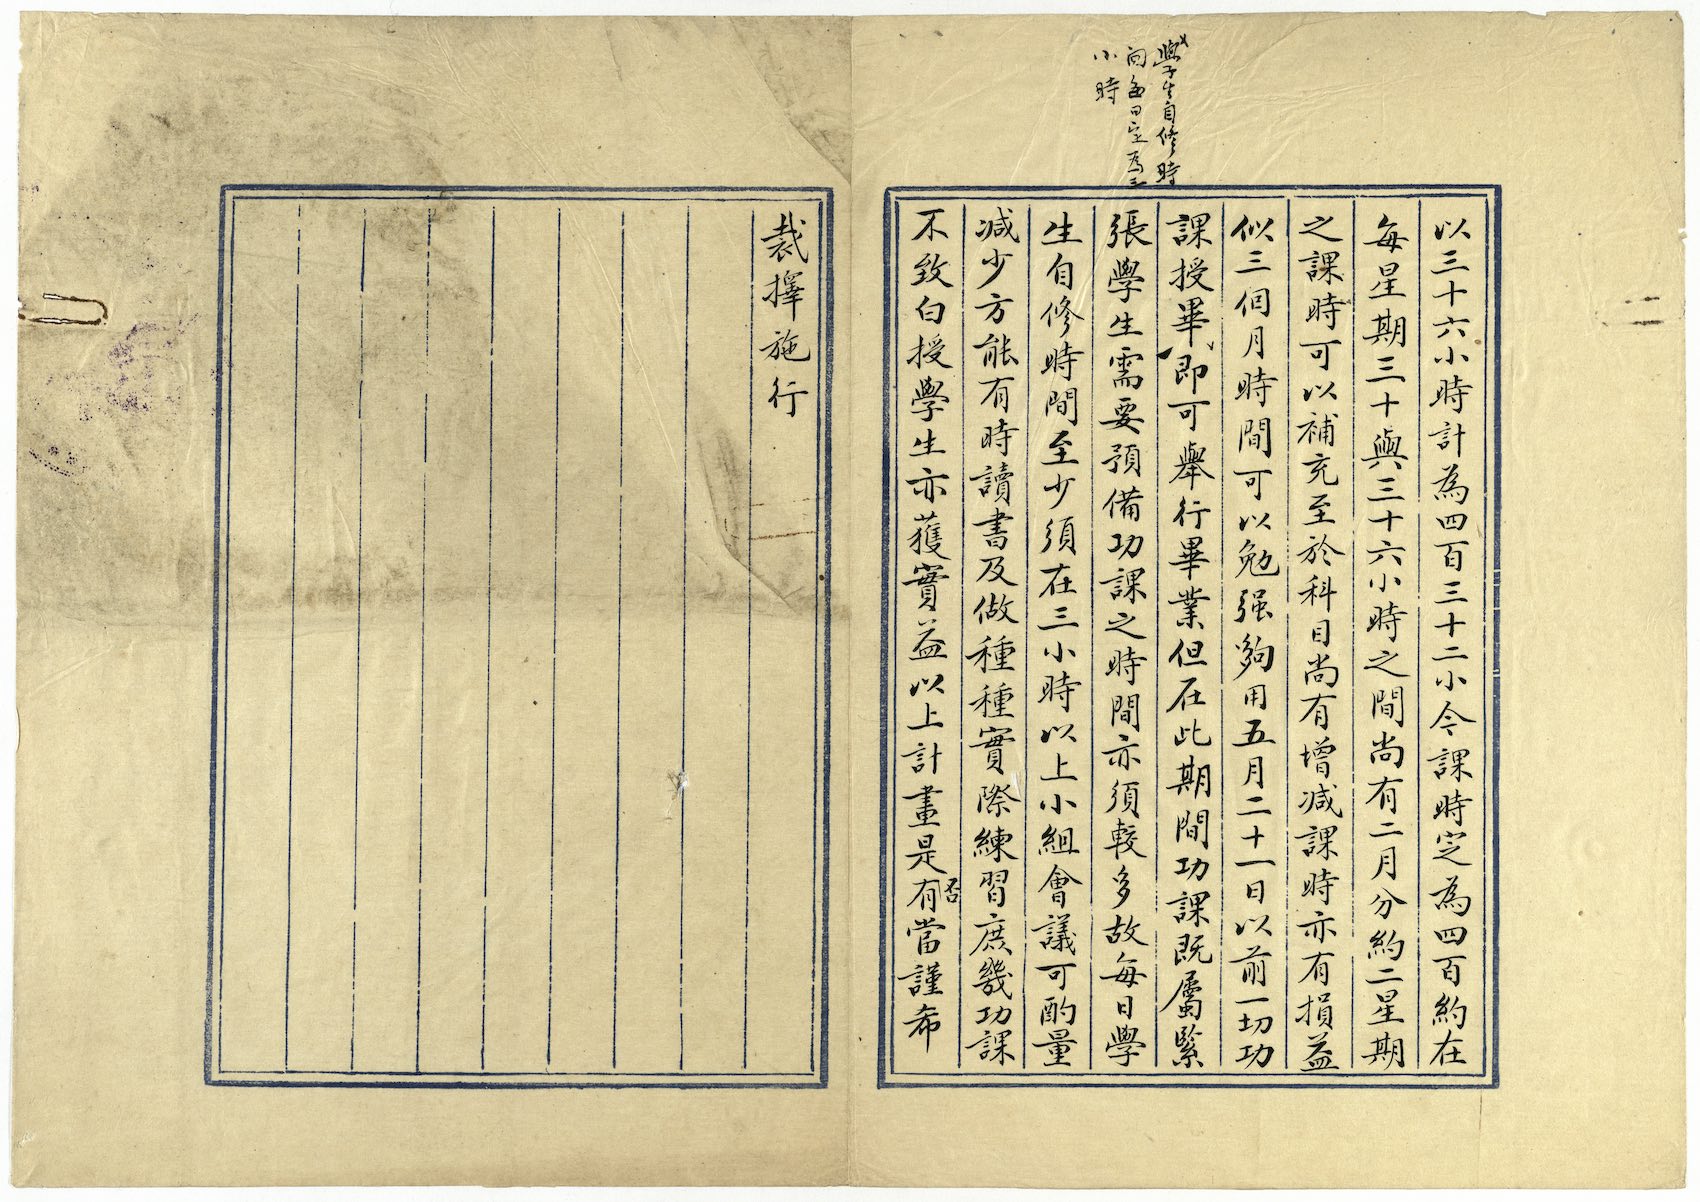 學生自修時
間每日定為三
小時
以三十六小時計為四百三十二小今課時定為四百約在
每星期三十與三十六小時之間尚有二月分約二星期
之課時可以補充至於科目尚有增減課時亦有損益
似三個月時間可以勉强夠用五月二十一日以前一切功
課授畢即可舉行畢業但在此期間功課既屬緊
張學生需要預備功課之時間亦須較多故每日學
生自修時間至少須在三小時以上小組會議可酌量
減少方能有時讀書及做種種實際練習庶幾功課
不致白授學生亦獲實益以上計畫是否有當謹希
裁擇施行